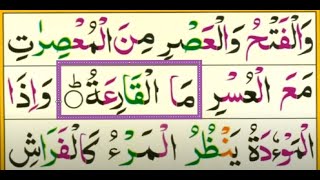 وَالْفَتْحُ وَالْعَصْرِ مِنَ الْمُعْصِرٰتِ
مَعَ الْعُسْرِ مَا الْقَارِعَةُ ۝ؕ وَاِذَا
الْمَوْءٗدَةُ يَنْظُرُ الْمَرْءُ كَالْفَرَاشِ